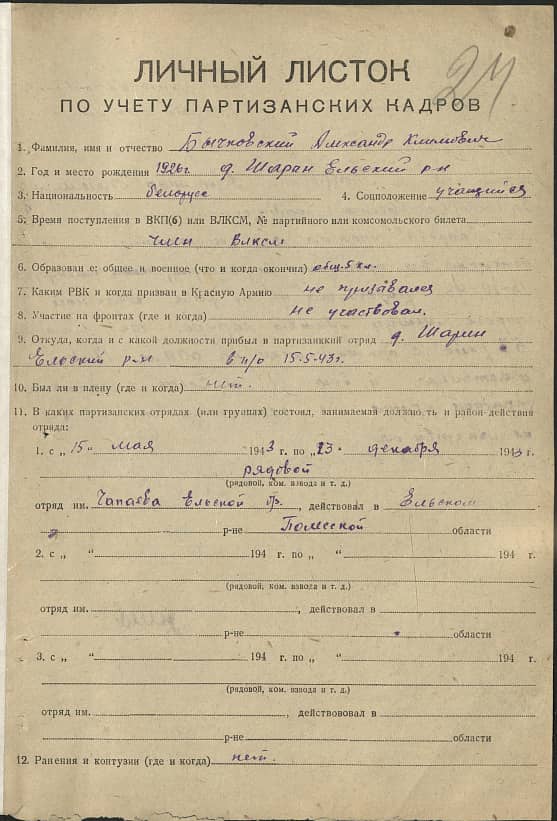 24
ЛИЧНЫЙ ЛИСТОК
ПО УЧЕТУ ПАРТИЗАНСКИХ КАДРОВ
1. Фамилия, имя и отчество Бычковский Александр Климович
2. Год и место рождения 1926г д. Шарин Ельский р-н
3. Национальность белорусс 4. Соцположение учащийся
5. Время поступления в ВКП(б) или ВЛКСМ, № партийного или комсомольского билета
член ВЛКСМ
6. Образован е: общее и военное (что и когда окончил) общ. 5 кл.
7. Каким РВК и когда призван в Красную Армию не призывался
8. Участие на фронтах (где и когда) не участвовал.
9. Откуда, когда и с какой должности прибыл в партизанский отряд д. Шарин
Ельский р-н в п/о 15-5-43г.
10. Был ли в плену (где и когда) нет.
11. В каких партизанских отрядах (или группах) состоял, занимаемая должность и район действия
отряда:
1. с „15" мая 1943 г. по „23" декабря 1943 г.
рядовой
(рядовой, ком. взвода и т. д.)
отряд им. Чапаева Ельской бр., действовал в Ельском
р-не Полесской области
2. с „ " 194 г. по „ " 194 г.
(рядовой, ком. взвода и т. д.)
отряд им. , действовал в
р-не области
3. с „ " 194 г. по „ " 194 г.
(рядовой, ком. взвода и т. д.)
отряд им. , действововал в
р-не области
12. Ранения и контузии (где и когда) нет.